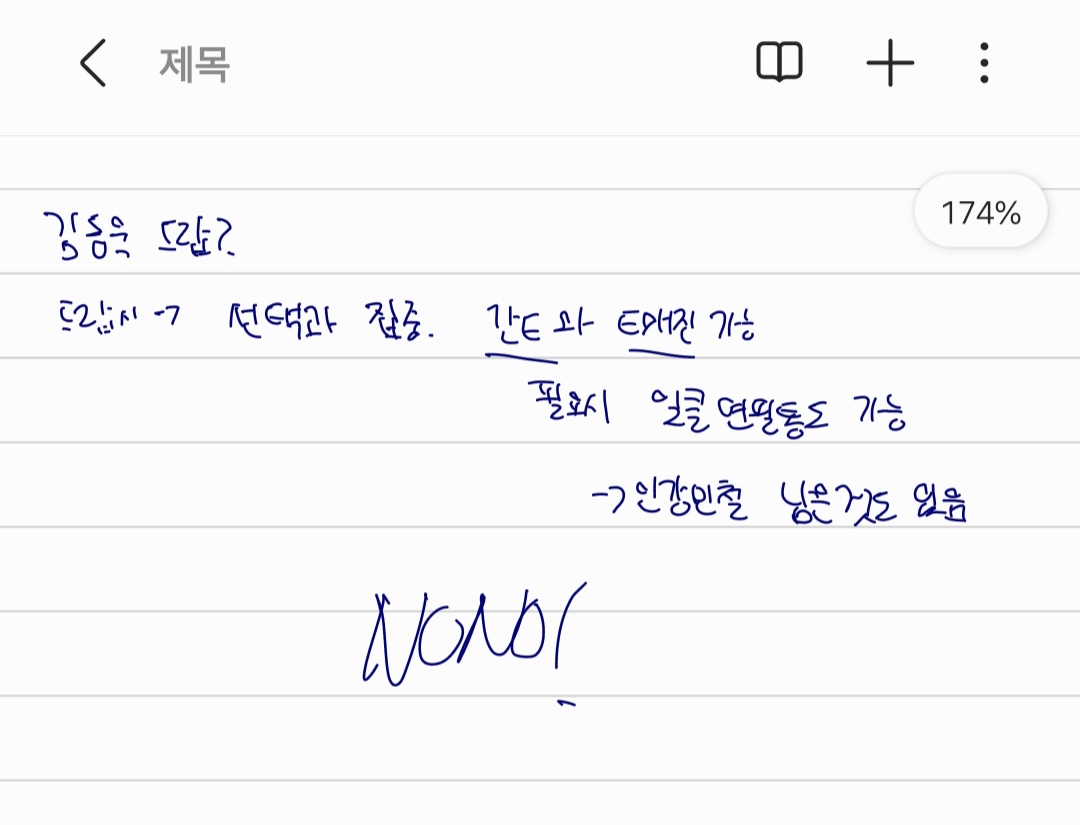 제목
174%
김동욱 드랍?
드랍시 → 선택과 집중. 간E와 E매진 가능
필요시 얼클 연필통도 가능
→ 인강민철 넣은것도 없음
NONO!